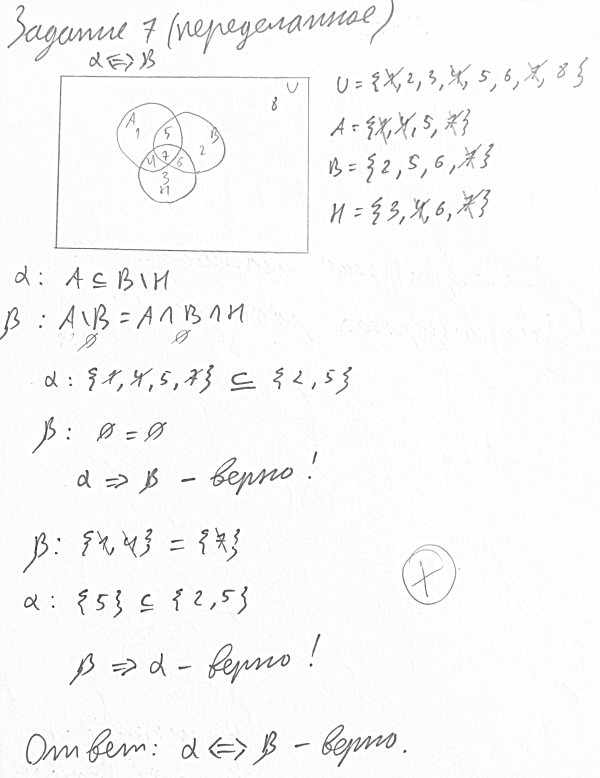 Задание 7 (переделанное)
α <=> β
U
8
A
1
5
B
2
4
7
6
3
H
U = {1, 2, 3, 4, 5, 6, 7, 8}
A = {1, 4, 5, 7}
B = {2, 5, 6, 7}
H = {3, 4, 6, 7}
α : A ⊆ B \ H
β : A \ B = A ∩ B ∩ H
∅ ∅
α : {1, 4, 5, 7} ⊆ {2, 5}
β : ∅ = ∅
α => β - верно!
β : {1, 4} = {7}
α : {5} ⊆ {2, 5}
+
β => α - верно!
Ответ: α <=> β - верно.